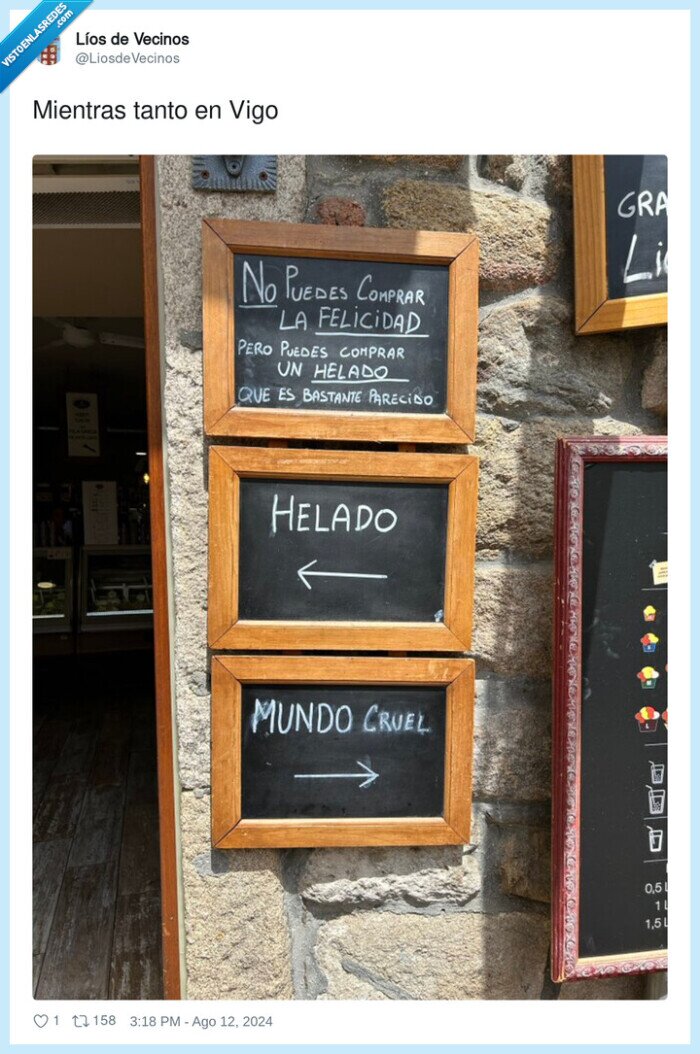 VISTOENLASREDES
.com
Líos de Vecinos
@LiosdeVecinos
Mientras tanto en Vigo
No PUEDES COMPRAR
LA FELICIDAD
PERO PUEDES COMPRAR
UN HELADO
QUE ES BASTANTE PARECIDO
HELADO
←
MUNDO CRUEL
→
GRA
Li
S
M
L
0,5 L
1 L
1,5 L
1 158 3:18 PM - Ago 12, 2024